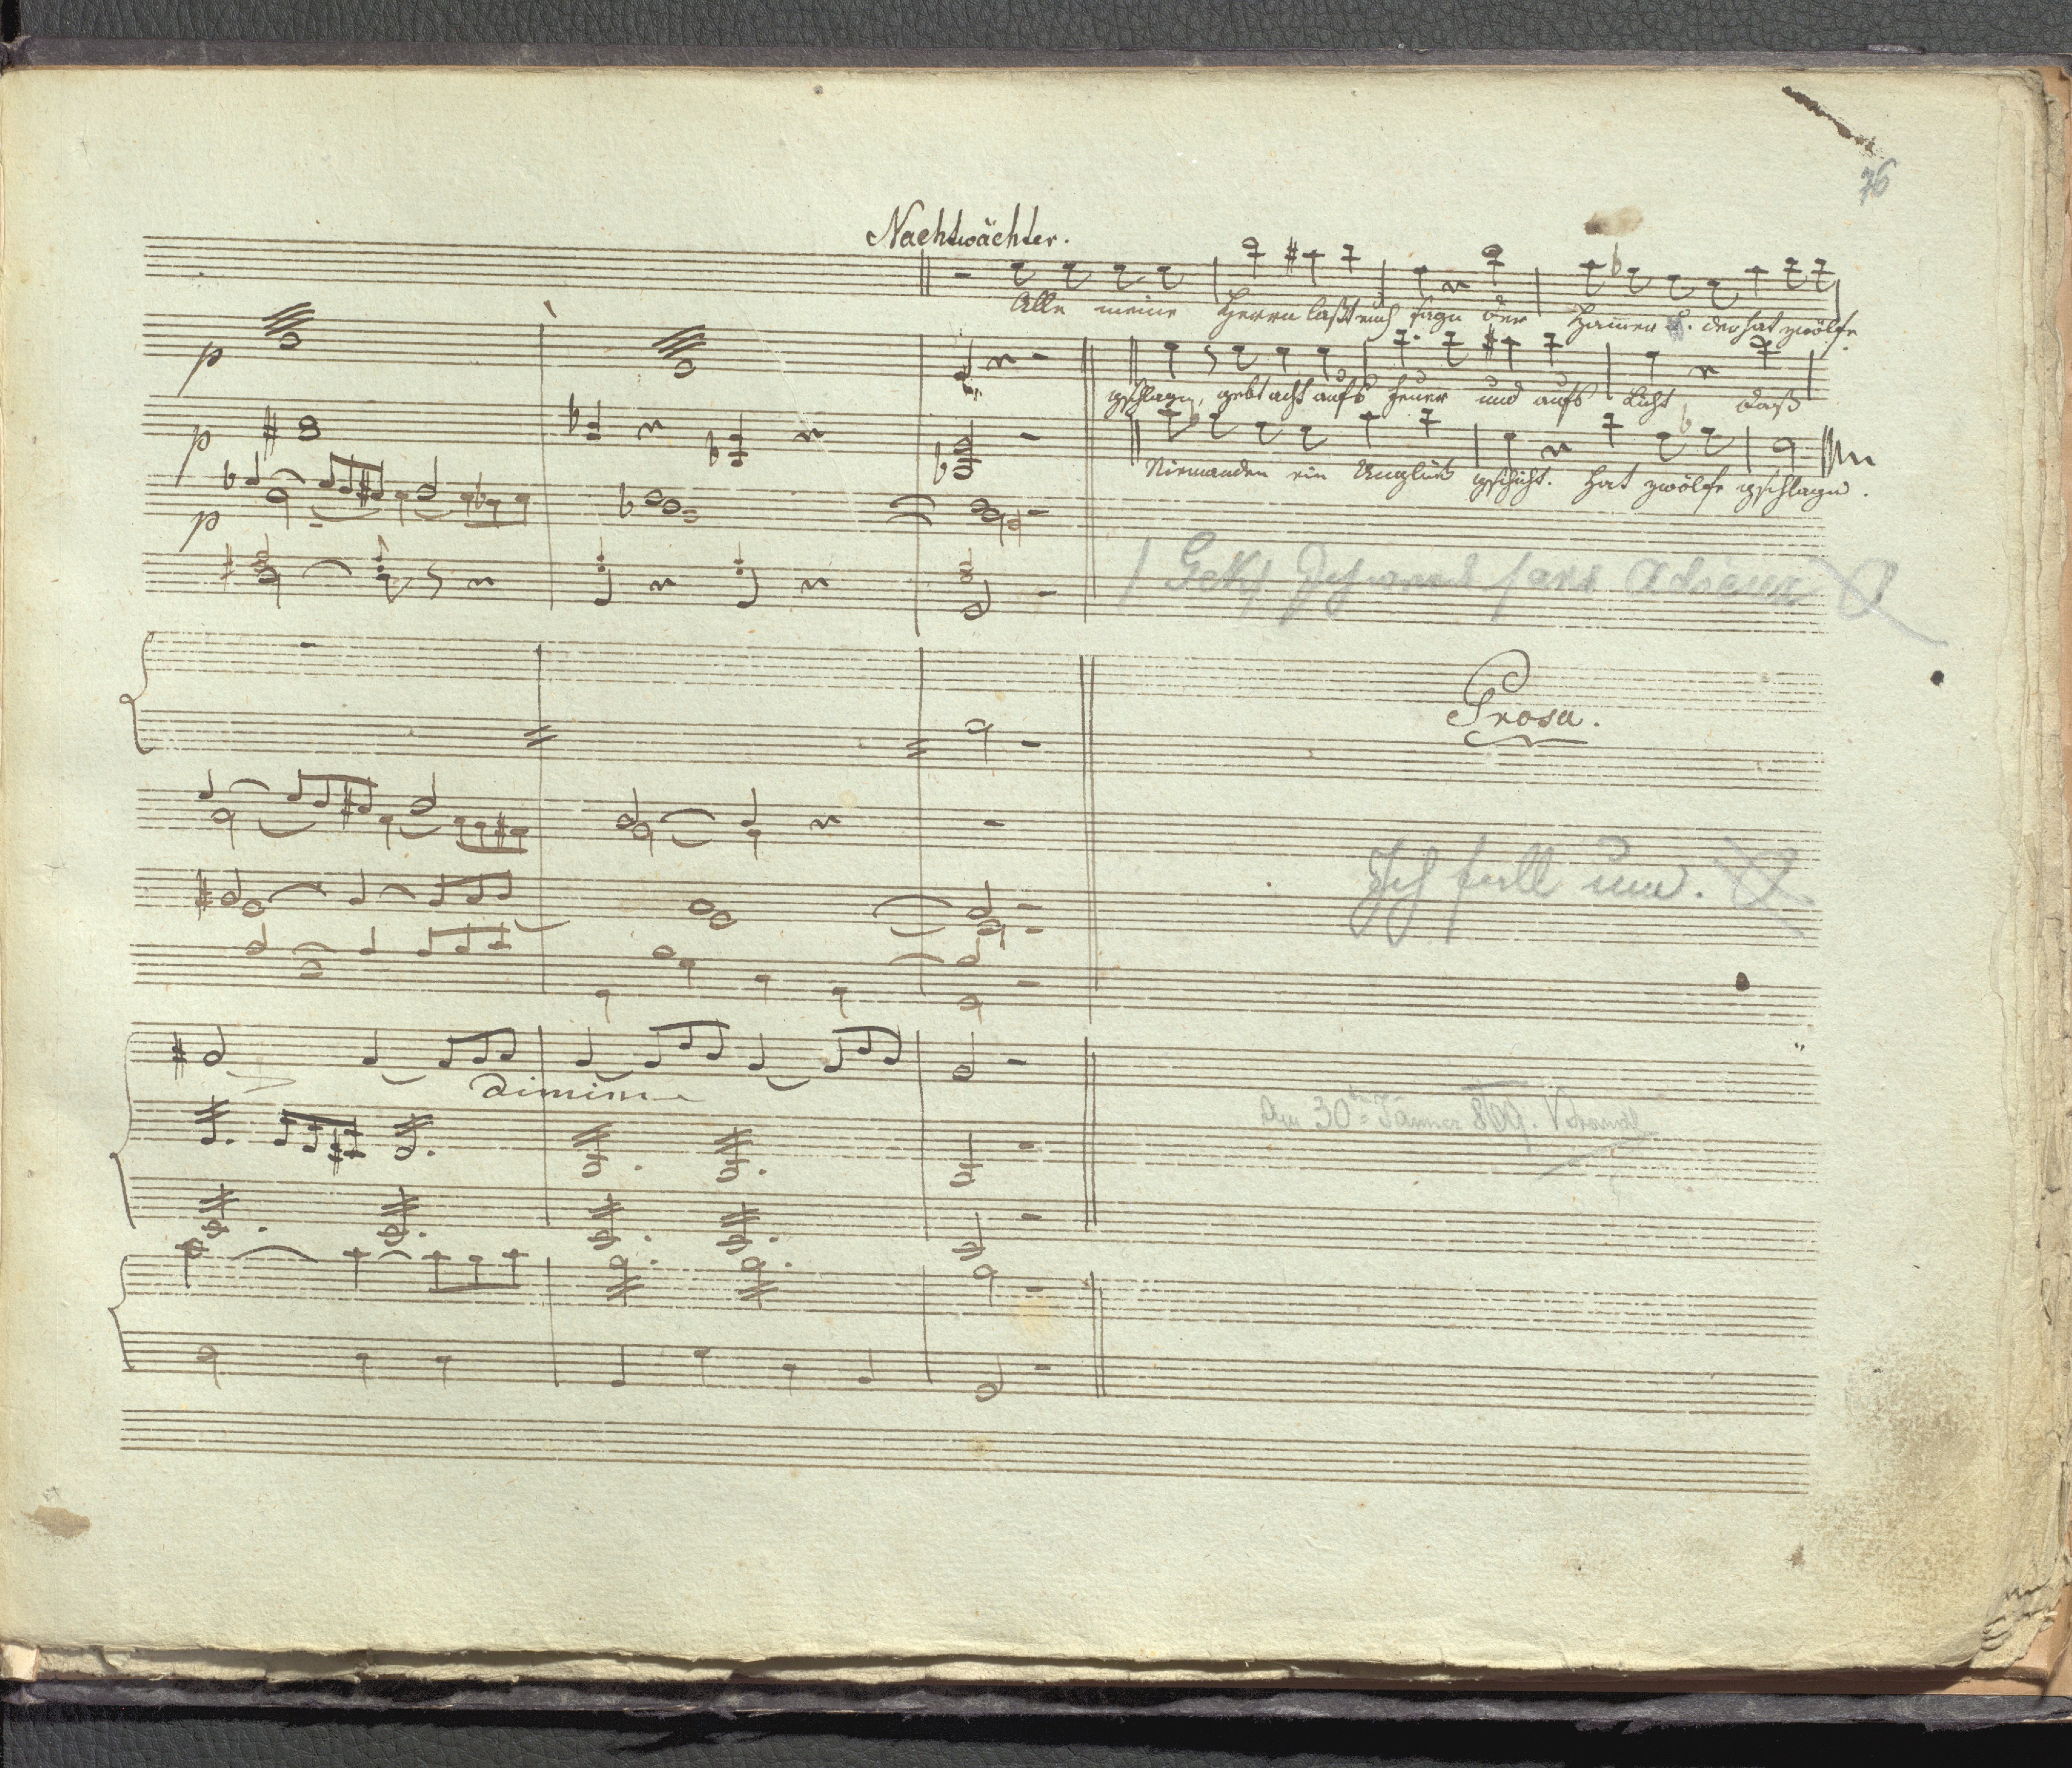 76
Nachtwächter.
Alle meine Herrn lasst euch sagn der Hamer d. der hat zwölfe
gschlagn, gebt acht aufs Feuer und aufs Licht, dass
Niemanden ein Unglück gschicht. Hat zwölfe gschlagn.
p
p
p
sans Adieux
Prosa.
Ich fall um.
dimin
Am 30ten Jänner 809.